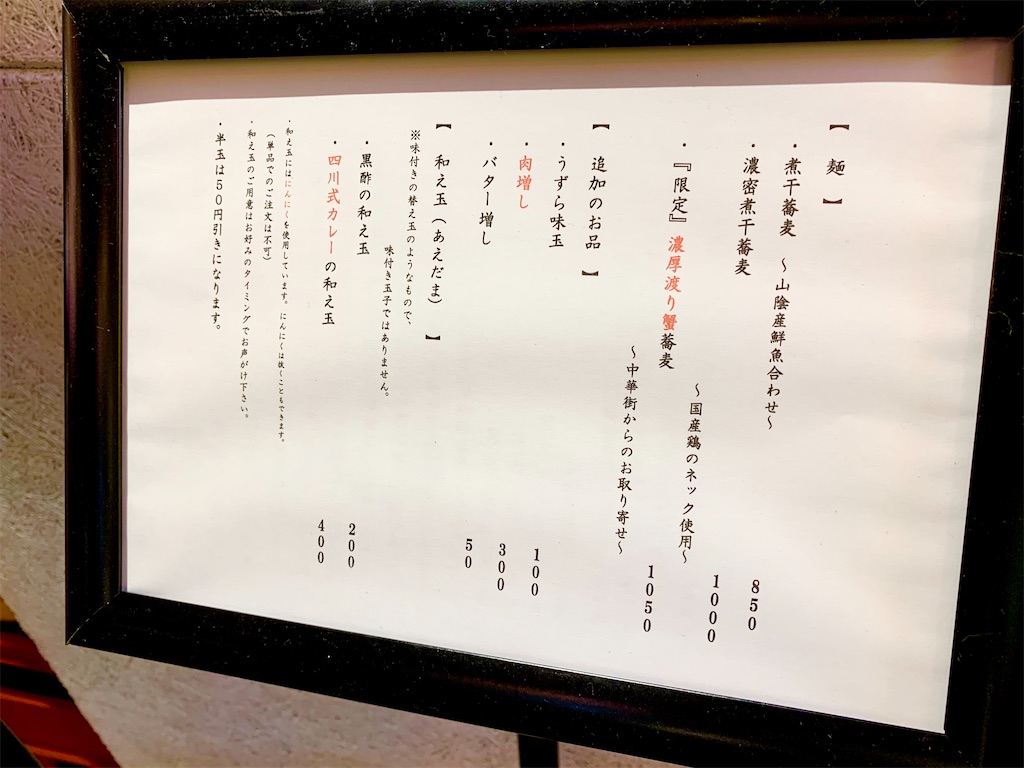 【 麺 】
・煮干蕎麦 ~山陰産鮮魚合わせ~ 850
・濃密煮干蕎麦 ~国産鶏のネック使用~ 1000
・『限定』濃厚渡り蟹蕎麦 ~中華街からのお取り寄せ~ 1050
【 追加のお品 】
・うずら味玉 100
・肉増し 300
・バター増し 50
【 和え玉(あえだま) 】
※味付きの替え玉のようなもので、
味付き玉子ではありません。
・黒酢の和え玉 200
・四川式カレーの和え玉 400
・和え玉にはにんにくを使用しています。にんにくは抜くこともできます。
(単品でのご注文は不可)
・和え玉のご用意はお好みのタイミングでお声がけ下さい。
・半玉は50円引きになります。